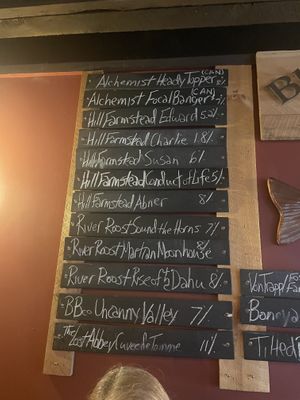 (CAN)
Alchemist Heady Topper 8%
(CAN)
Alchemist Focal Banger 7%
Hill Farmstead Edward 5.2%
Hill Farmstead Charlie 1.8%
Hill Farmstead Susan 6%
Hill Farmstead Conduct of Life 5%
Hill Farmstead Abner 8%
River Roost Sound the Horns 7%
River Roost Martian Moonhouse 8%
River Roost Rise of Dahu 8%
BBco Uncanny Valley 7%
The
Lost Abbey Cuvee de Tomme 11%
Von Trapp